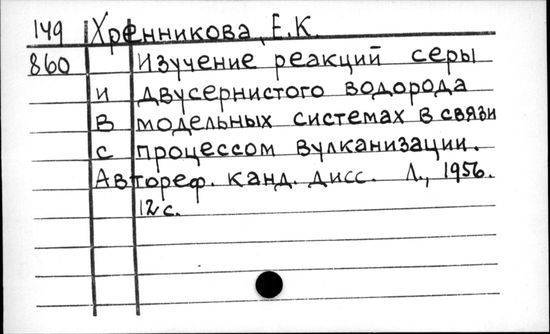 149 Хренникова, Е.К.
860 Изучение реакций серы
и двусернистого водорода
в модельных системах в связи
с процессом вулканизации.
Автореф. канд. дисс. Л., 1956.
12 с.